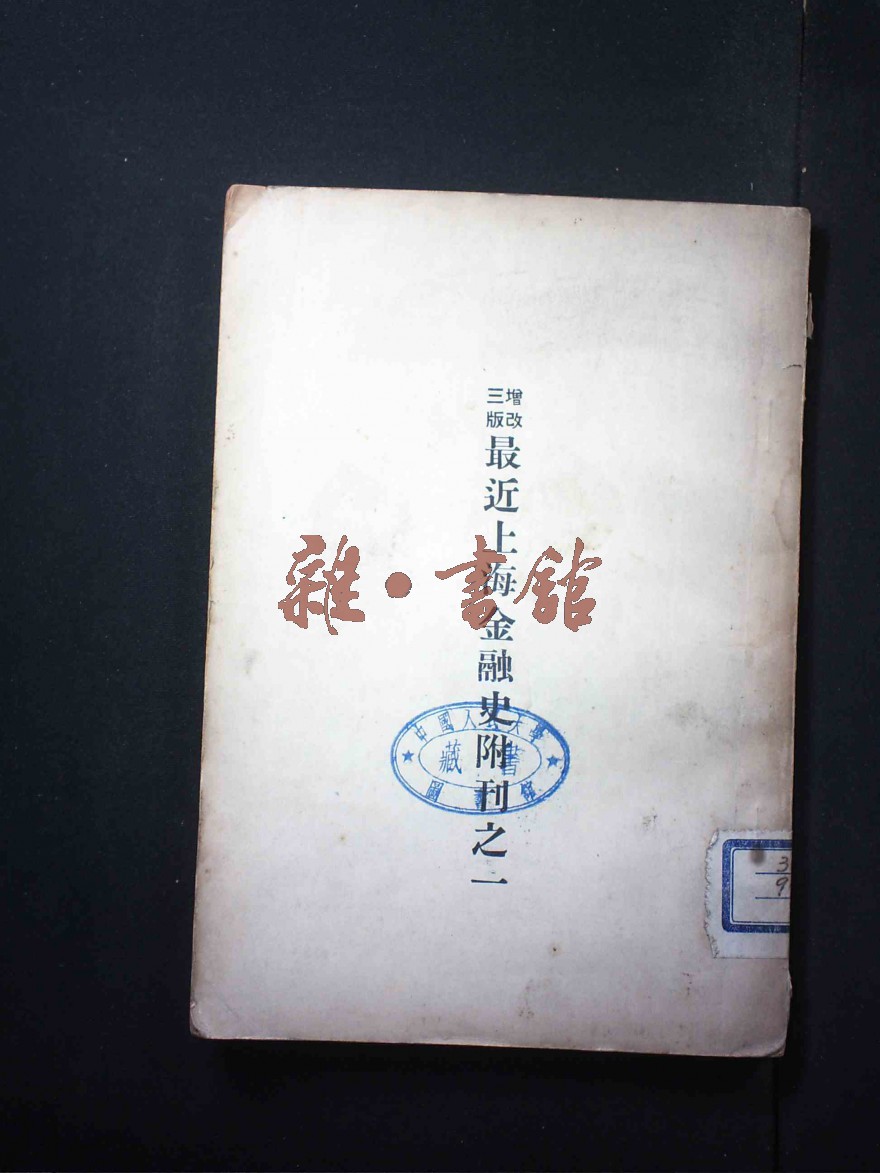 增改三版
最近上海金融史附刊之一
雜·書館
中國人民大學
藏書
圖書館
3
9